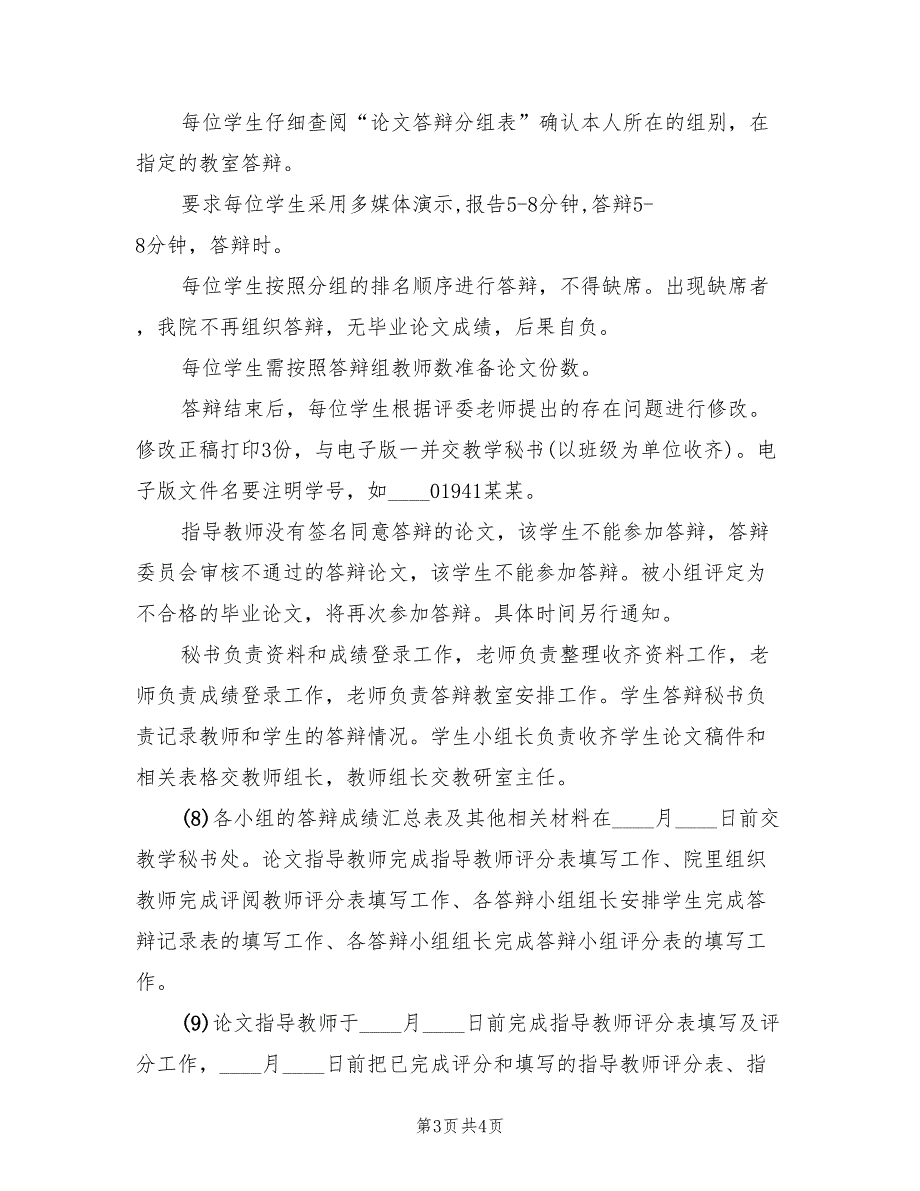 每位学生仔细查阅“论文答辩分组表”确认本人所在的组别，在
指定的教室答辩。
要求每位学生采用多媒体演示,报告5-8分钟,答辩5-
8分钟，答辩时。
每位学生按照分组的排名顺序进行答辩，不得缺席。出现缺席者
，我院不再组织答辩，无毕业论文成绩，后果自负。
每位学生需按照答辩组教师数准备论文份数。
答辩结束后，每位学生根据评委老师提出的存在问题进行修改。
修改正稿打印3份，与电子版一并交教学秘书(以班级为单位收齐)。电
子版文件名要注明学号，如____01941某某。
指导教师没有签名同意答辩的论文，该学生不能参加答辩，答辩
委员会审核不通过的答辩论文，该学生不能参加答辩。被小组评定为
不合格的毕业论文，将再次参加答辩。具体时间另行通知。
秘书负责资料和成绩登录工作，老师负责整理收齐资料工作，老
师负责成绩登录工作，老师负责答辩教室安排工作。学生答辩秘书负
责记录教师和学生的答辩情况。学生小组长负责收齐学生论文稿件和
相关表格交教师组长，教师组长交教研室主任。
(8)各小组的答辩成绩汇总表及其他相关材料在____月____日前交
教学秘书处。论文指导教师完成指导教师评分表填写工作、院里组织
教师完成评阅教师评分表填写工作、各答辩小组组长安排学生完成答
辩记录表的填写工作、各答辩小组组长完成答辩小组评分表的填写工
作。
(9)论文指导教师于____月____日前完成指导教师评分表填写及评
分工作，____月____日前把已完成评分和填写的指导教师评分表、指
第3页 共4页